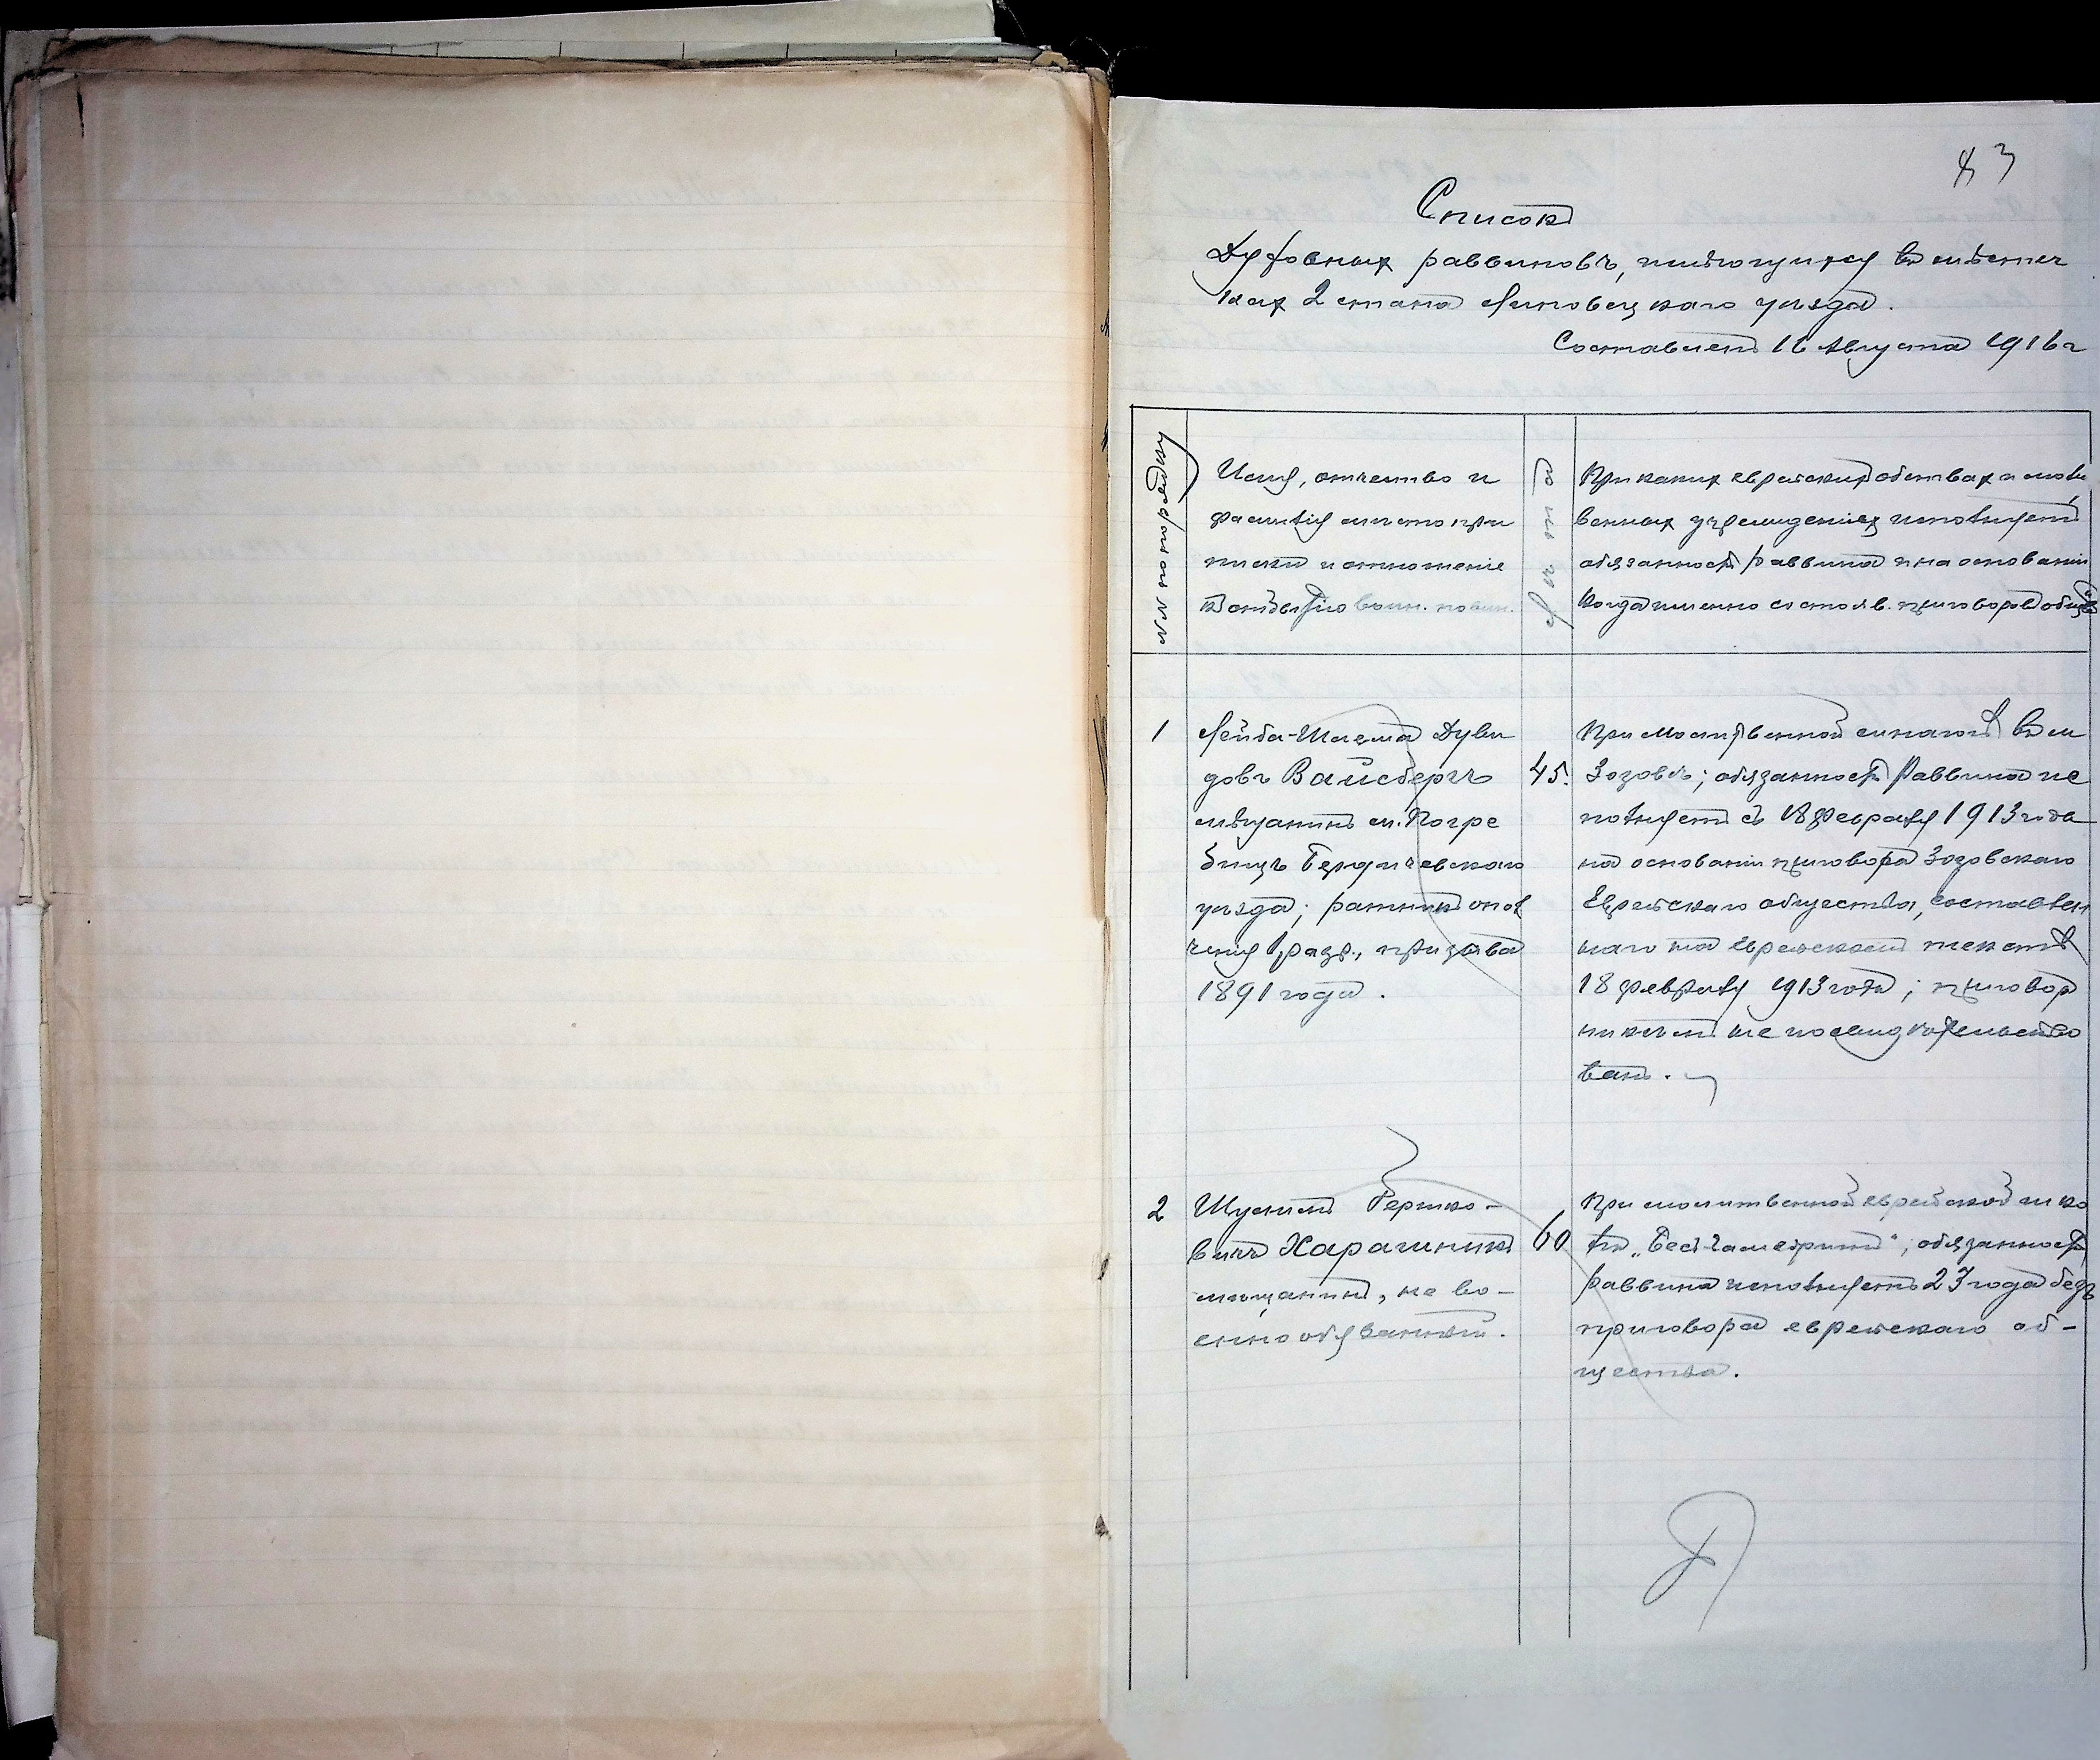 83
Списокъ
Духовныхъ раввиновъ, имѣющихся въ мѣстеч
кахъ 2 стана Липовецкаго уѣзда.
Составленъ 16 Августа 1916 г
№№ по порядку
Имя, отчество и
фамилія мѣсто при
писки и отношеніе
къ отбытію воин. повин.
Лѣта
При какихъ еврейскихъ общвахъ и молит
венныхъ учрежденіяхъ исполняетъ
обязанность раввина и на основаніи
когда именно состояв. приговоровъ общва
1
Лейба-Шаема Дуви
довъ Вайсбергъ
мѣщанинъ м. Погре
бищъ Бердичевскаго
уѣзда; ратникъ опол
ченія 1 разр., призыва
1891 года.
45.
При Молитвенной синагогѣ въ м
Зозовѣ; обязанность Раввина ис
полняетъ съ 18 Февраля 1913 года
на основаніи приговора Зозовскаго
Еврейскаго общества, составлен
наго на еврейскомъ текстѣ
18 февраля 1913 года; приговоръ
никѣмъ не посвидѣтельство
ванъ.
2
Шулимъ Гершко-
вичъ Харашникъ
мѣщанинъ, не во-
еннообязанный.
60
При молитвенной еврейской шко
лѣ „Бес-Гамедришъ"; обязанность
раввина исполняетъ 23 года безъ
приговора еврейскаго об-
щества.